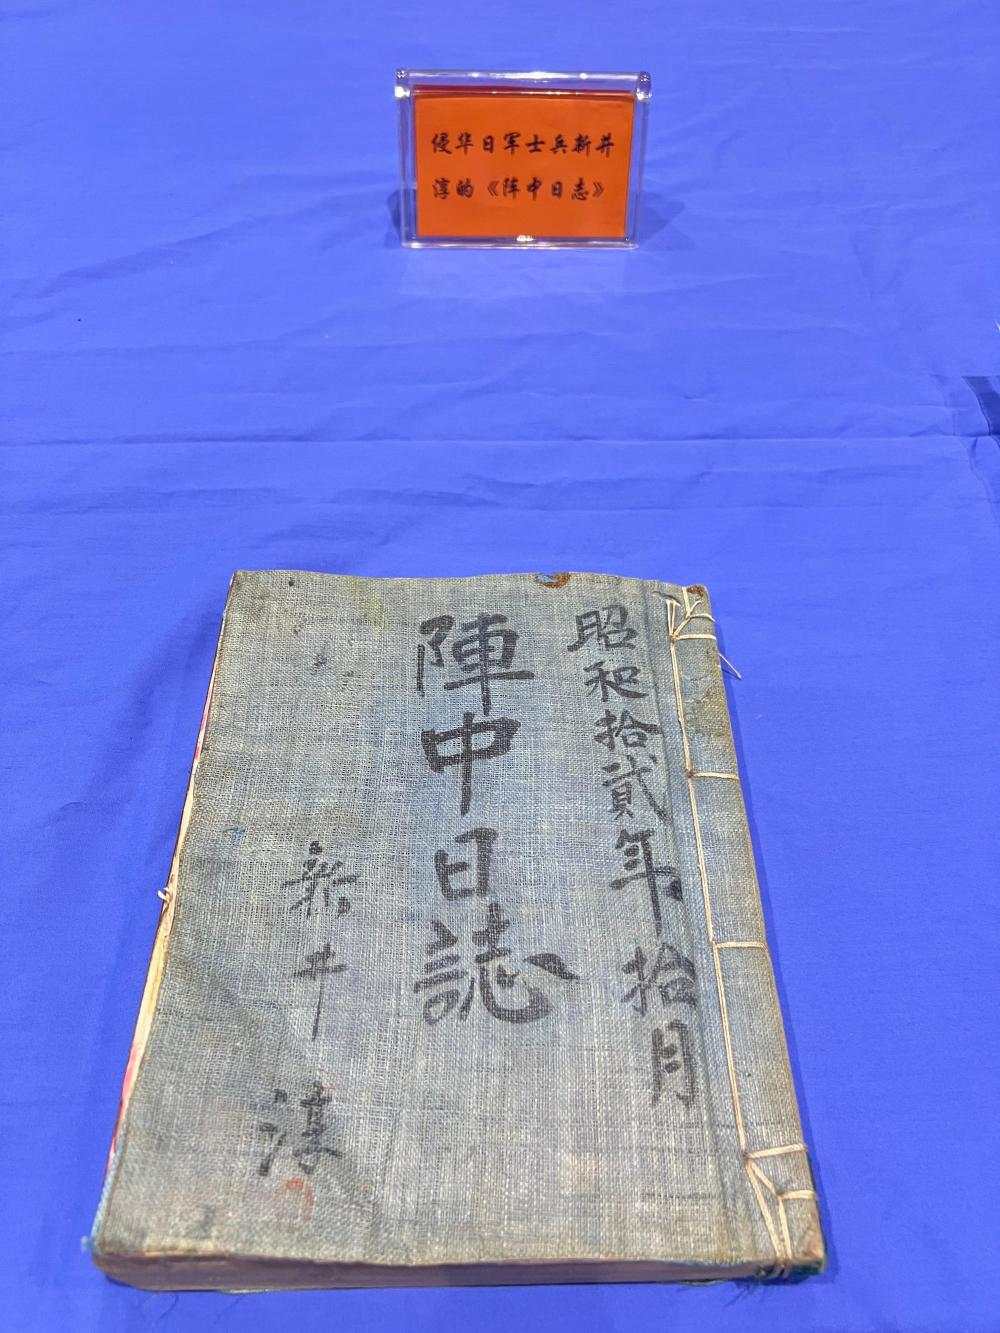 侵华日军士兵新井
淳的《阵中日志》
昭和拾貳年拾月
陣中日誌
新井 淳